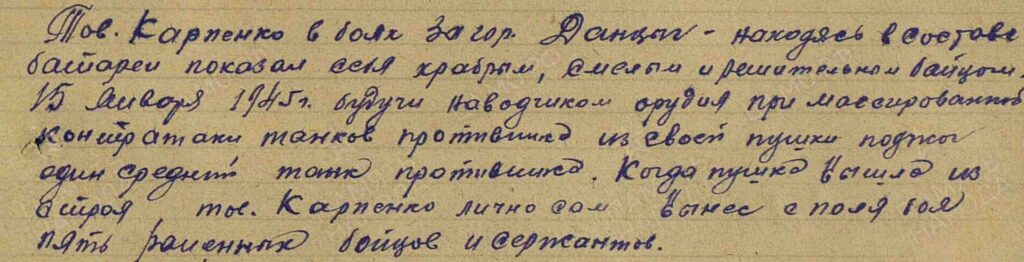 Тов. Карпенко в боях за гор. Данцыг - находясь в составе
батареи показал себя храбрым, смелым и решительным бойцом.
15 января 1945г. будучи наводчиком орудия при массированной
контратаки танков противника из своей пушки поджог
один средний танк противника. Когда пушка вышла из
строя тов. Карпенко лично сам вынес с поля боя
пять раненных бойцов и сержантов.